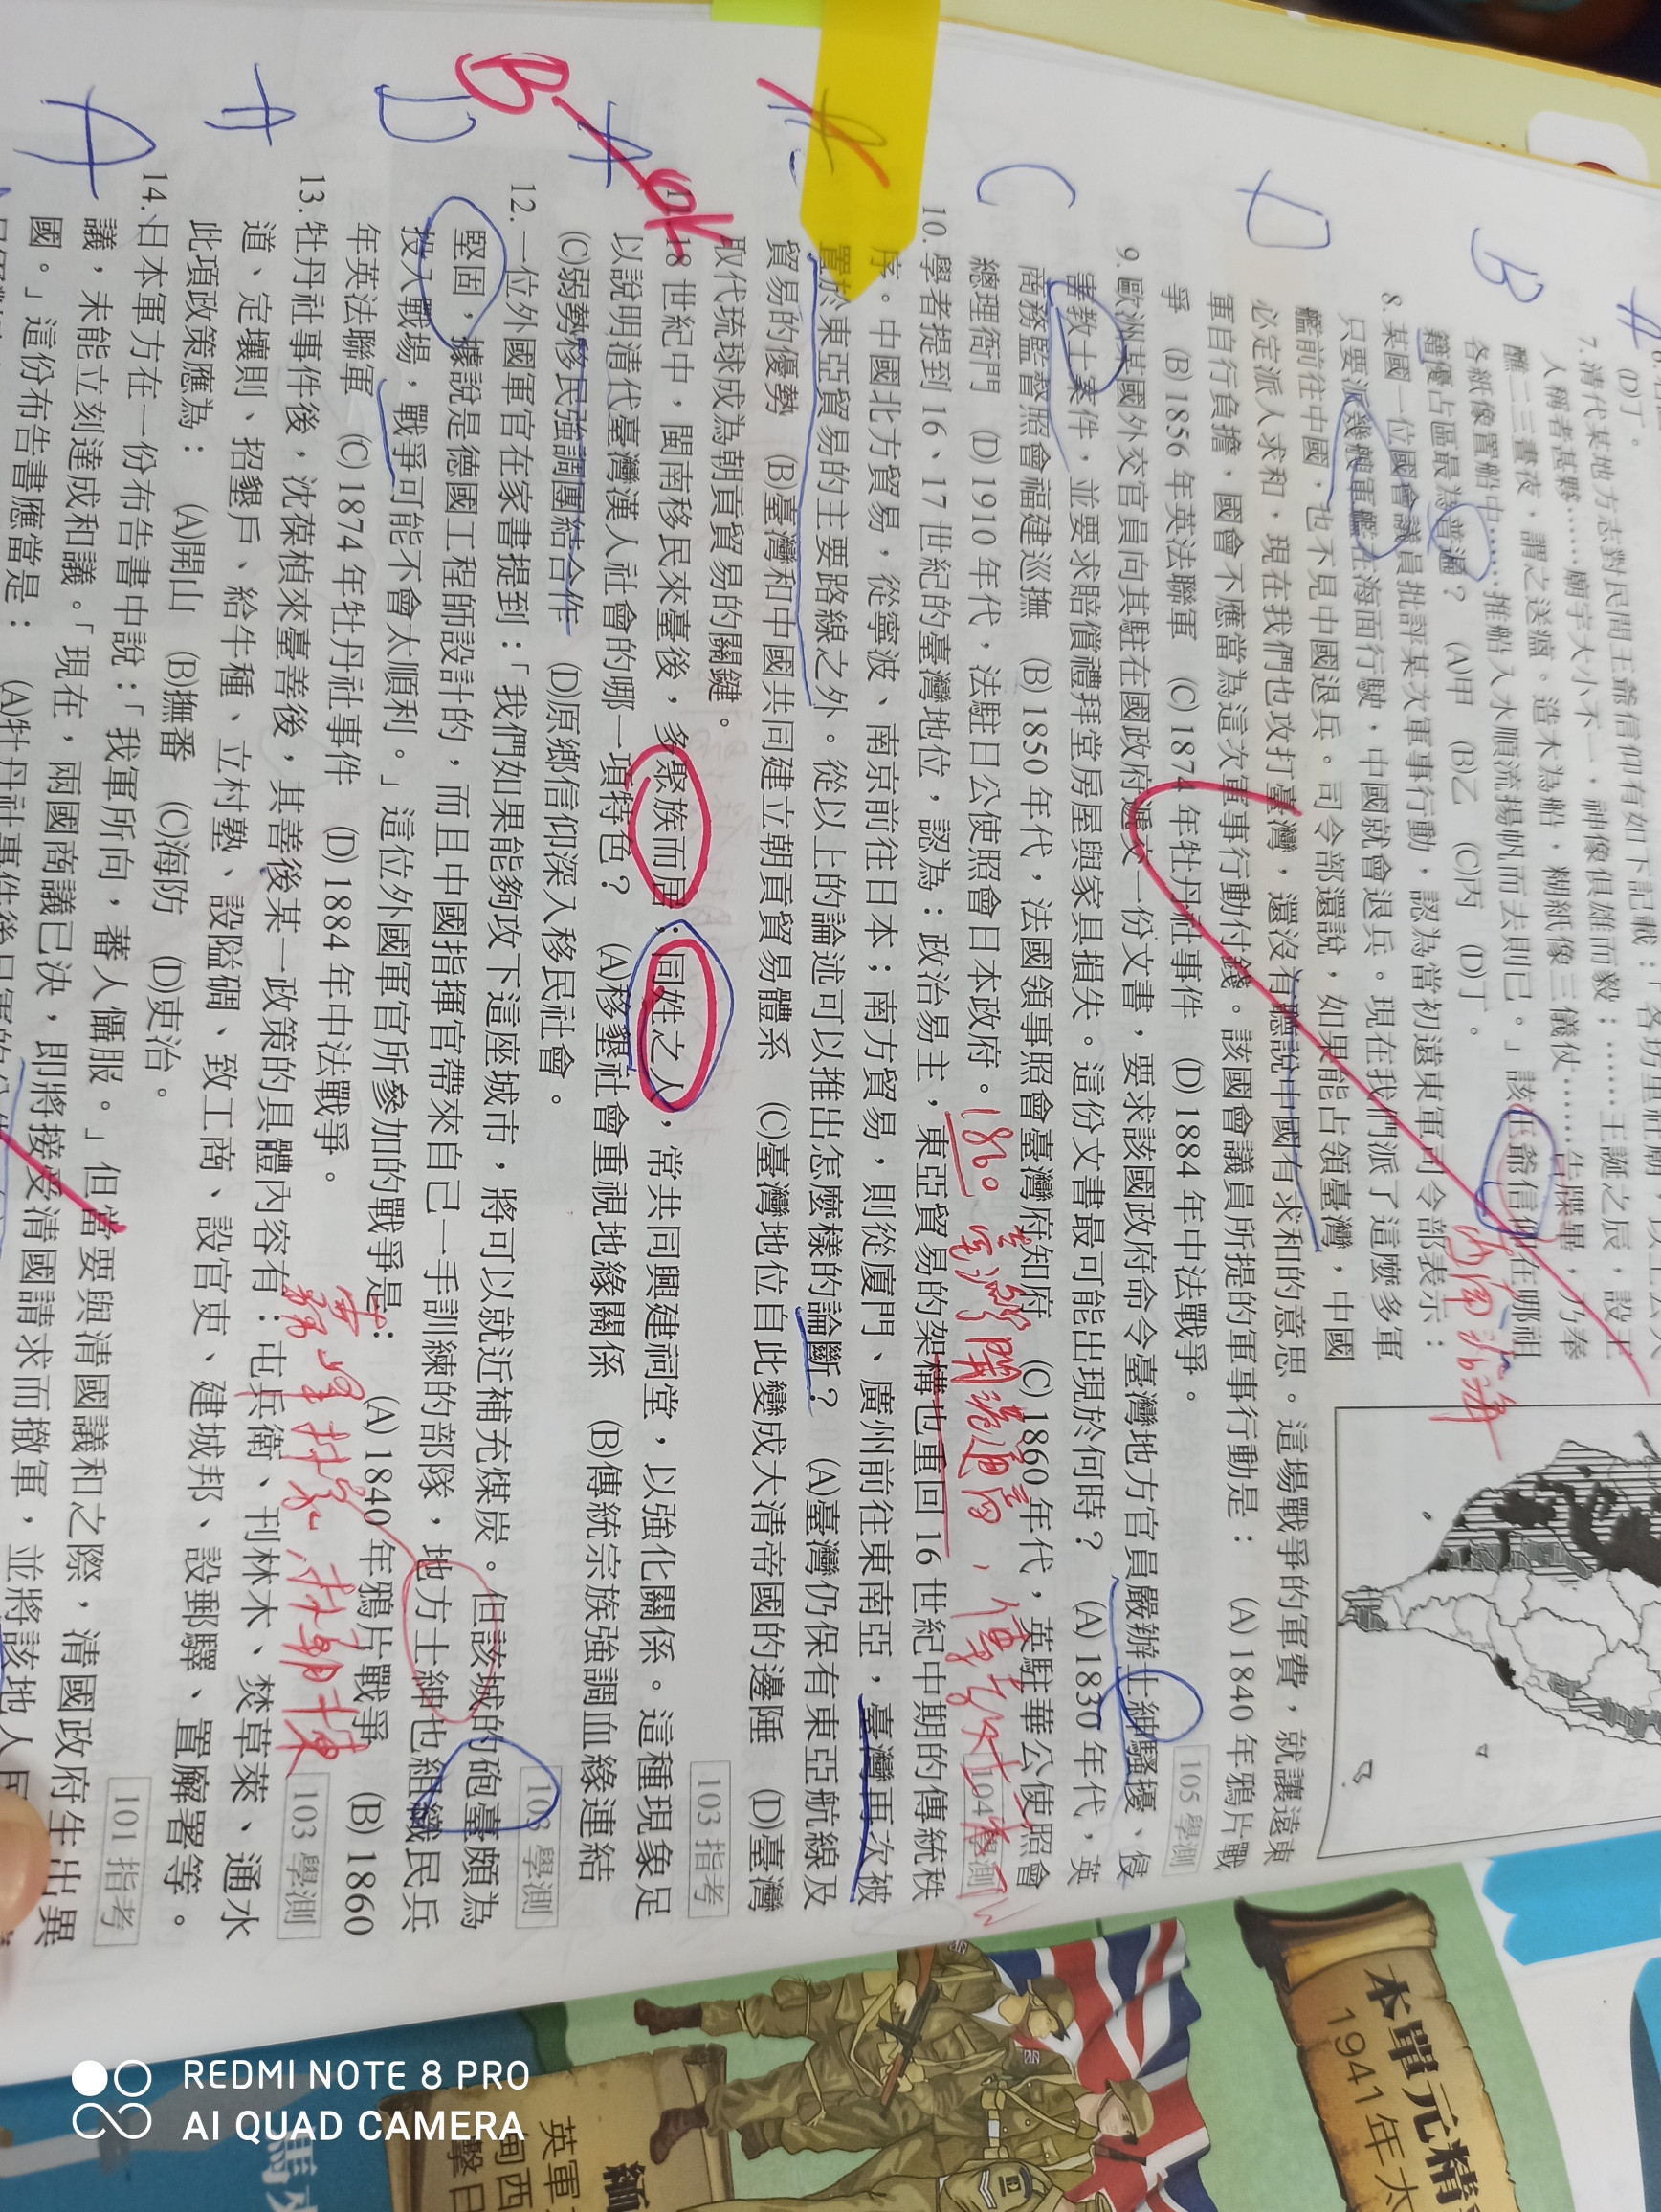 (D)丁。
7. 清代某地方志對民間王爺信仰有如下記載：「各坊里社廟，以王公大
人稱者甚夥……廟宇大小不一，神像俱雄而毅；……王誕之辰，設王
醮二三晝夜，謂之送瘟。造木為船，糊紙像三儀仗……告牒畢，乃奉
各紙像置船中……推船入水順流揚帆而去則已。」該王爺信仰在哪祖
籍優占區最為普遍？ (A)甲 (B)乙 (C)丙 (D)丁。
8. 某國一位國會議員批評某次軍事行動，認為當初遠東軍司令部表示：
只要派幾艘軍艦在海面行駛，中國就會退兵。現在我們派了這麼多軍
艦前往中國，也不見中國退兵。司令部還說，如果能占領臺灣，中國
必定派人求和，現在我們也攻打臺灣，還沒有聽說中國有求和的意思。這場戰爭的軍費，就讓遠東
軍自行負擔，國會不應當為這次軍事行動付錢。該國會議員所提的軍事行動是： (A) 1840 年鴉片戰
爭 (B) 1856 年英法聯軍 (C) 1874 年牡丹社事件 (D) 1884 年中法戰爭。
105 學測
9. 歐洲某國外交官員向其駐在國政府遞交一份文書，要求該國政府命令臺灣地方官員嚴辦士紳騷擾、侵
害教士案件，並要求賠償禮拜堂房屋與家具損失。這份文書最可能出現於何時？ (A) 1830 年代，英
商務監督照會福建巡撫 (B) 1850 年代，法國領事照會臺灣府知府 (C) 1860 年代，英駐華公使照會
總理衙門 (D) 1910 年代，法駐日公使照會日本政府。 1860 臺灣開港通商，傳教士
104 學測
10. 學者提到 16、17 世紀的臺灣地位，認為：政治易主，東亞貿易的架構也重回 16 世紀中期的傳統秩
序。中國北方貿易，從寧波、南京前往日本；南方貿易，則從廈門、廣州前往東南亞，臺灣再次被
置於東亞貿易的主要路線之外。從以上的論述可以推出怎麼樣的論斷？ (A)臺灣仍保有東亞航線及
貿易的優勢 (B)臺灣和中國共同建立朝貢貿易體系 (C)臺灣地位自此變成大清帝國的邊陲 (D)臺灣
取代琉球成為朝貢貿易的關鍵。
103 指考
18 世紀中，閩南移民來臺後，多聚族而居；同姓之人，常共同興建祠堂，以強化關係。這種現象足
以說明清代臺灣漢人社會的哪一項特色？ (A)移墾社會重視地緣關係 (B)傳統宗族強調血緣連結
(C)弱勢移民強調團結合作 (D)原鄉信仰深入移民社會。
103 學測
12. 一位外國軍官在家書提到：「我們如果能夠攻下這座城市，將可以就近補充煤炭。但該城的砲臺頗為
堅固，據說是德國工程師設計的，而且中國指揮官帶來自己一手訓練的部隊，地方士紳也組織民兵
投入戰場，戰爭可能不會太順利。」這位外國軍官所參加的戰爭是： (A) 1840 年鴉片戰爭 (B) 1860
年英法聯軍 (C) 1874 年牡丹社事件 (D) 1884 年中法戰爭。
103 學測
13. 牡丹社事件後，沈葆楨來臺善後，其善後某一政策的具體內容有：屯兵衛、刊林木、焚草萊、通水
道、定壤則、招墾戶、給牛種、立村塾、設隘碉、致工商、設官吏、建城邦、設郵驛、置廨署等。
此項政策應為： (A)開山 (B)撫番 (C)海防 (D)吏治。
101 指考
14. 日本軍方在一份布告書中說：「我軍所向，蕃人懾服。」但當要與清國議和之際，清國政府生出異
議，未能立刻達成和議。「現在，兩國商議已決，即將接受清國請求而撤軍，並將該地人民
國。」這份布告書應當是： (A)牡丹社事件後日軍的公告
A
B
D
C
A
B
OK
A
D
A
A
霧峰林家 林朝棟
本單元精
1941 年太
緬
英軍
甸西
擊日
REDMI NOTE 8 PRO
AI QUAD CAMERA